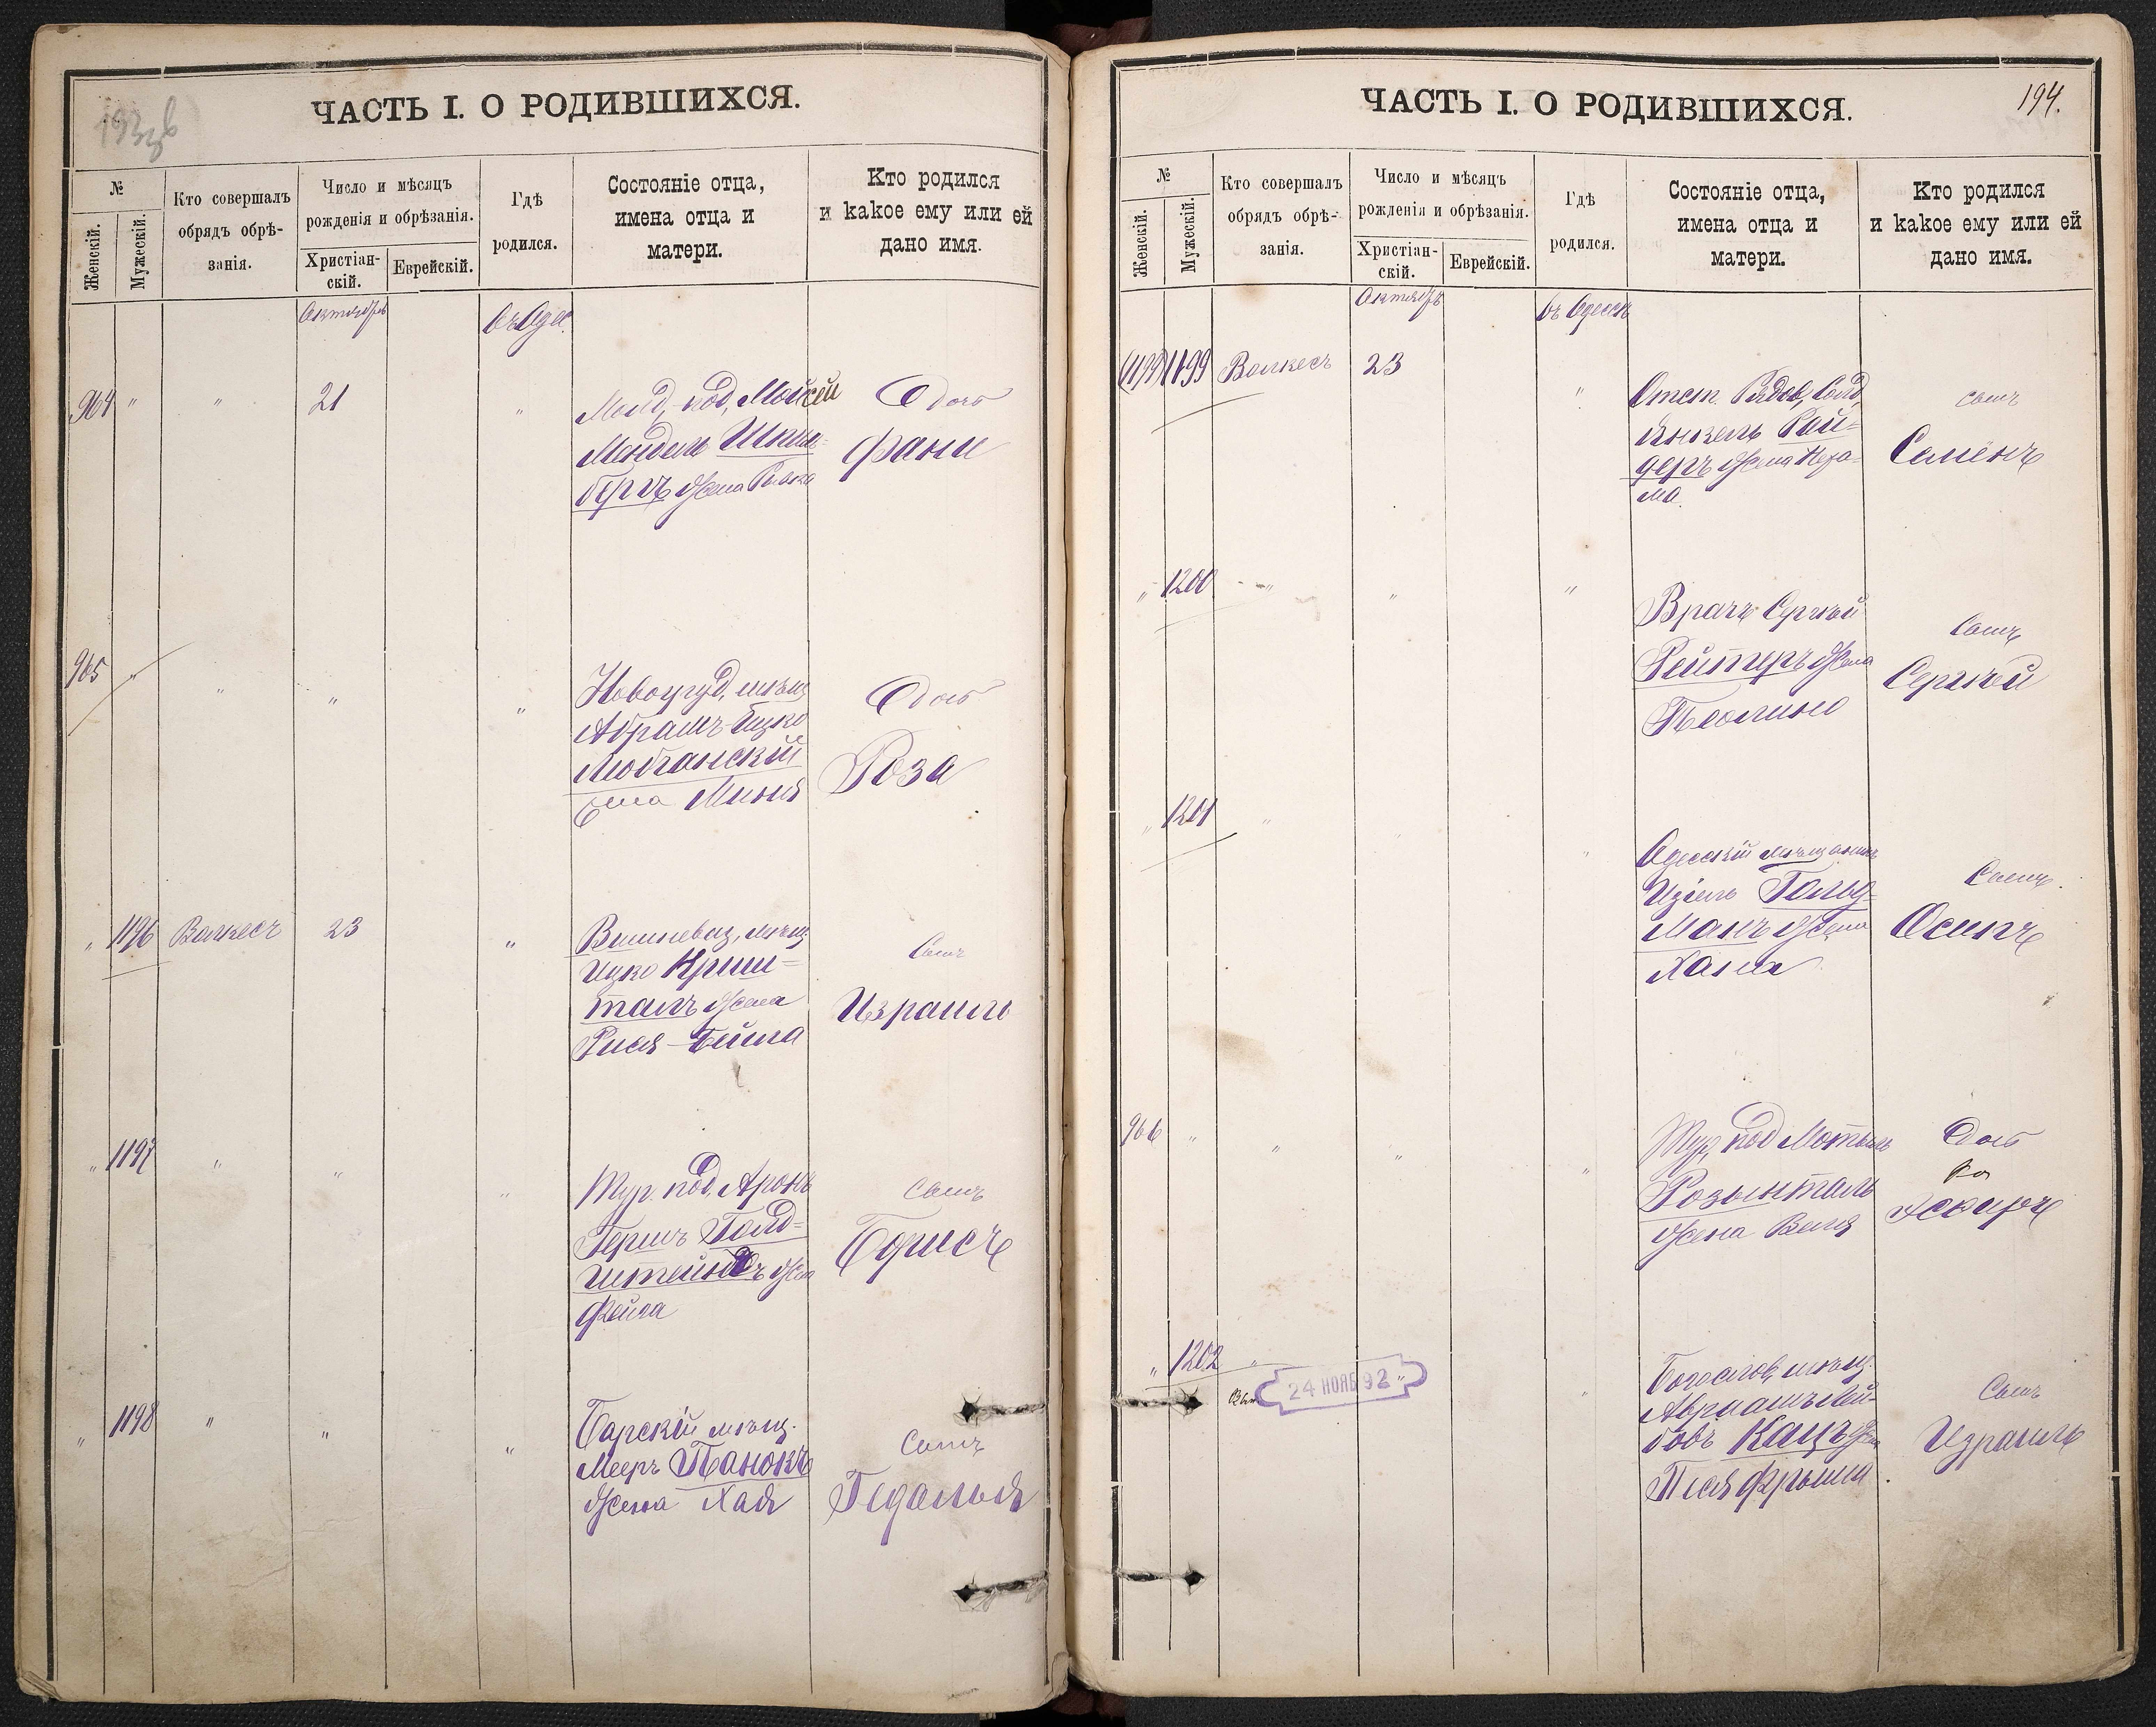 193об
ЧАСТЬ I. О РОДИВШИХСЯ.
№
Женскій.
Мужескій.
Кто совершалъ
обрядъ обрѣ-
занія.
Число и мѣсяцъ
рожденія и обрѣзанія.
Христіан-
скій.
Еврейскій.
Гдѣ
родился.
Состояніе отца,
имена отца и
матери.
Кто родился
и какое ему или ей
дано имя.
Октябрь
въ Одес.
964 " " 21 "
под, Мойсей
Мендель Шпин-
бергъ жена Ривка
Дочь
Фани
965 " " " "
мѣщ
Абрамъ-Ицко
Любчанскій
жена Миня
Дочь
Роза
" 1196 Волкесъ 23 "
Вишневец, мѣщ
Ицко Криш-
талъ жена
Рися-Бейла
Сынъ
Израиль
" 1197 " " "
Тур. под, Аронъ
Гершъ Голд-
штейнъ жена
Фейга
Сынъ
Борисъ
" 1198 " " "
Барскій мѣщ.
Мееръ Панокъ
жена Хая
Сынъ
Гедалья
ЧАСТЬ I. О РОДИВШИХСЯ.
194.
№
Женскій.
Мужескій.
Кто совершалъ
обрядъ обрѣ-
занія.
Число и мѣсяцъ
рожденія и обрѣзанія.
Христіан-
скій.
Еврейскій.
Гдѣ
родился.
Состояніе отца,
имена отца и
матери.
Кто родился
и какое ему или ей
дано имя.
Октябрь
въ Одессѣ
(1199) 1199 Волкесъ 23 "
Отст. Рядов,
Янкель Рай-
деръ жена Неха-
ма
сынъ
Семёнъ
" 1200 " " "
Врачъ Сергѣй
Рейтеръ жена
Сынъ
Сергѣй
" 1201 " "
Одесскій мѣщанинъ
Гольд-
манъ жена
Хана
Сынъ
Осипъ
966 " " " "
Тур, под Мотель
Розынталь
жена Веля
Дочь
" 1202 " " "
24 НОЯБ 92
мѣщ.
Абрамъ Лей-
бовъ Кацъ жена
Песя Фрыма.
Сынъ
Израиль